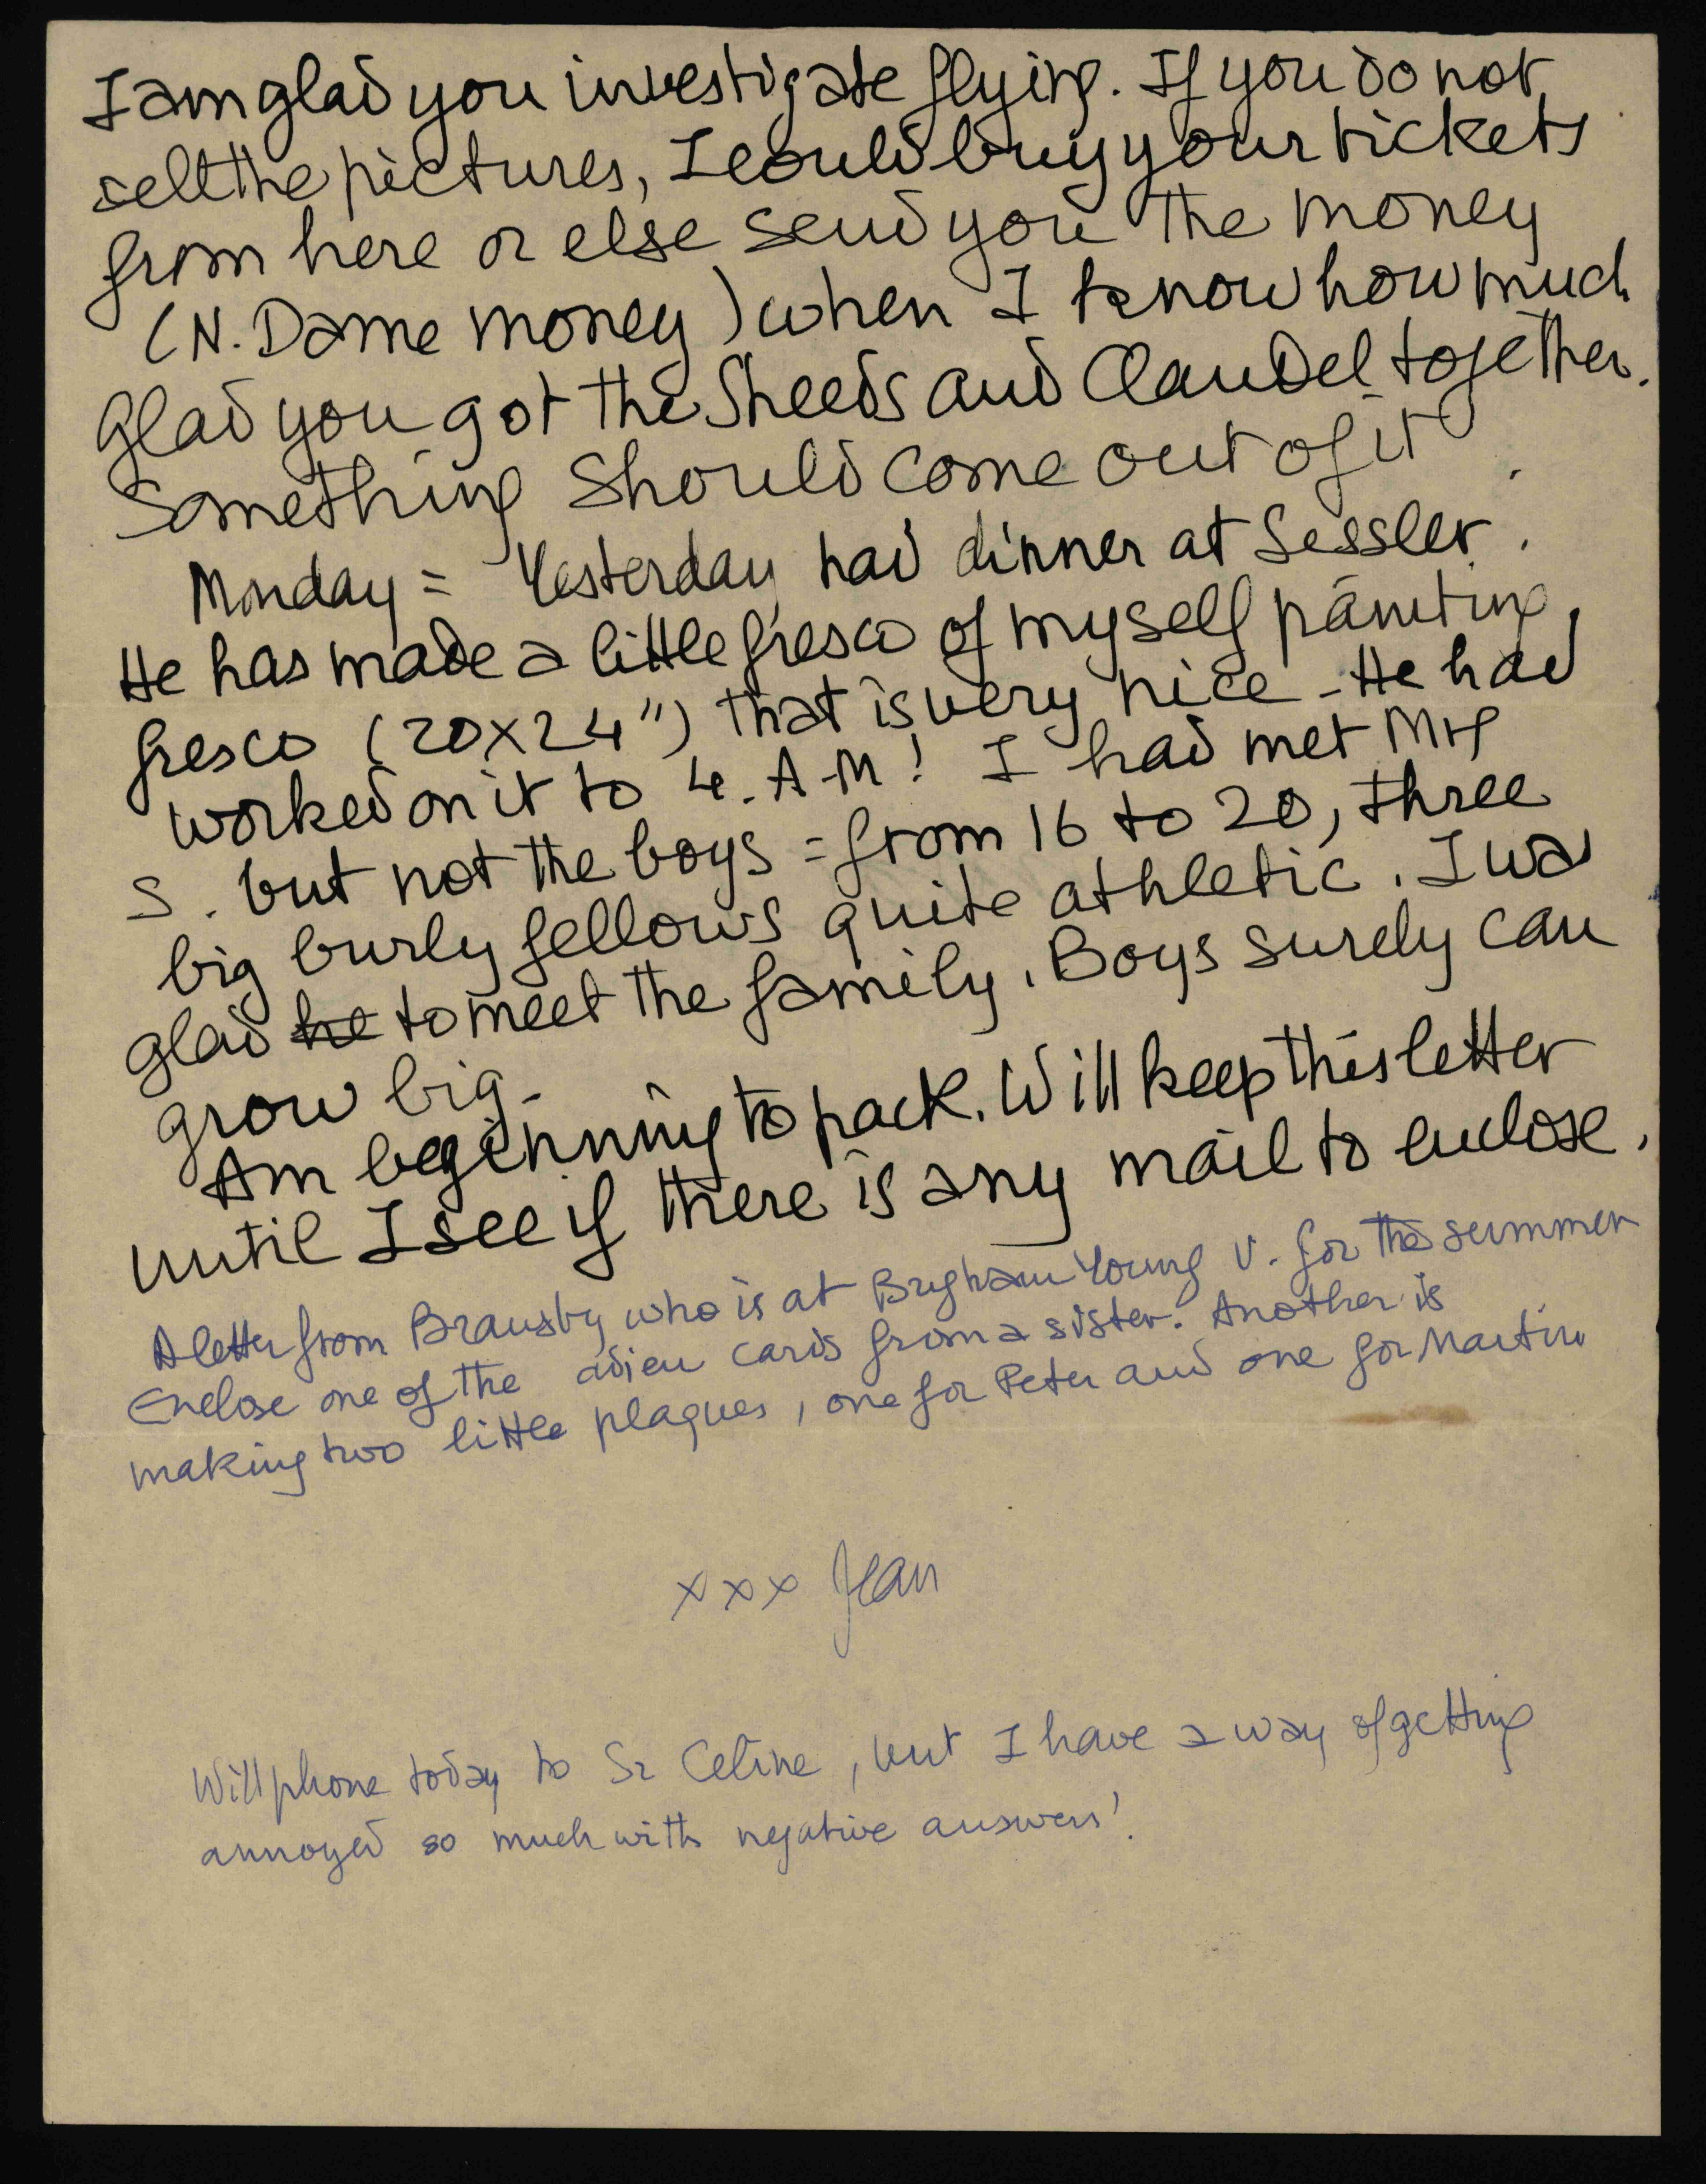 I am glad you investigate flying. If you do not
sell the pictures, I could buy your tickets
from here or else send you the money
(N. Dame money) when I know how much
Glad you got the Sheeds and Claudel together.
Something should come out of it.
Monday = Yesterday had dinner at Sessler.
He has made a little fresco of myself painting
fresco (20x24") that is very nice - He had
worked on it to 4. A-M! I had met Mrs
S. but not the boys = from 16 to 20, three
big burly fellows quite athletic. I was
glad he to meet the family. Boys surely can
grow big.
Am beginning to pack. Will keep this letter
until I see if there is any mail to enclose.
A letter from Bransby who is at Brigham Young U. for the summer
Enclose one of the adieu cards from a sister. Another is
making two little plaques, one for Peter and one for Martin
xxx Jean
Will phone today to Sr Celine, but I have a way of getting
annoyed so much with negative answers!